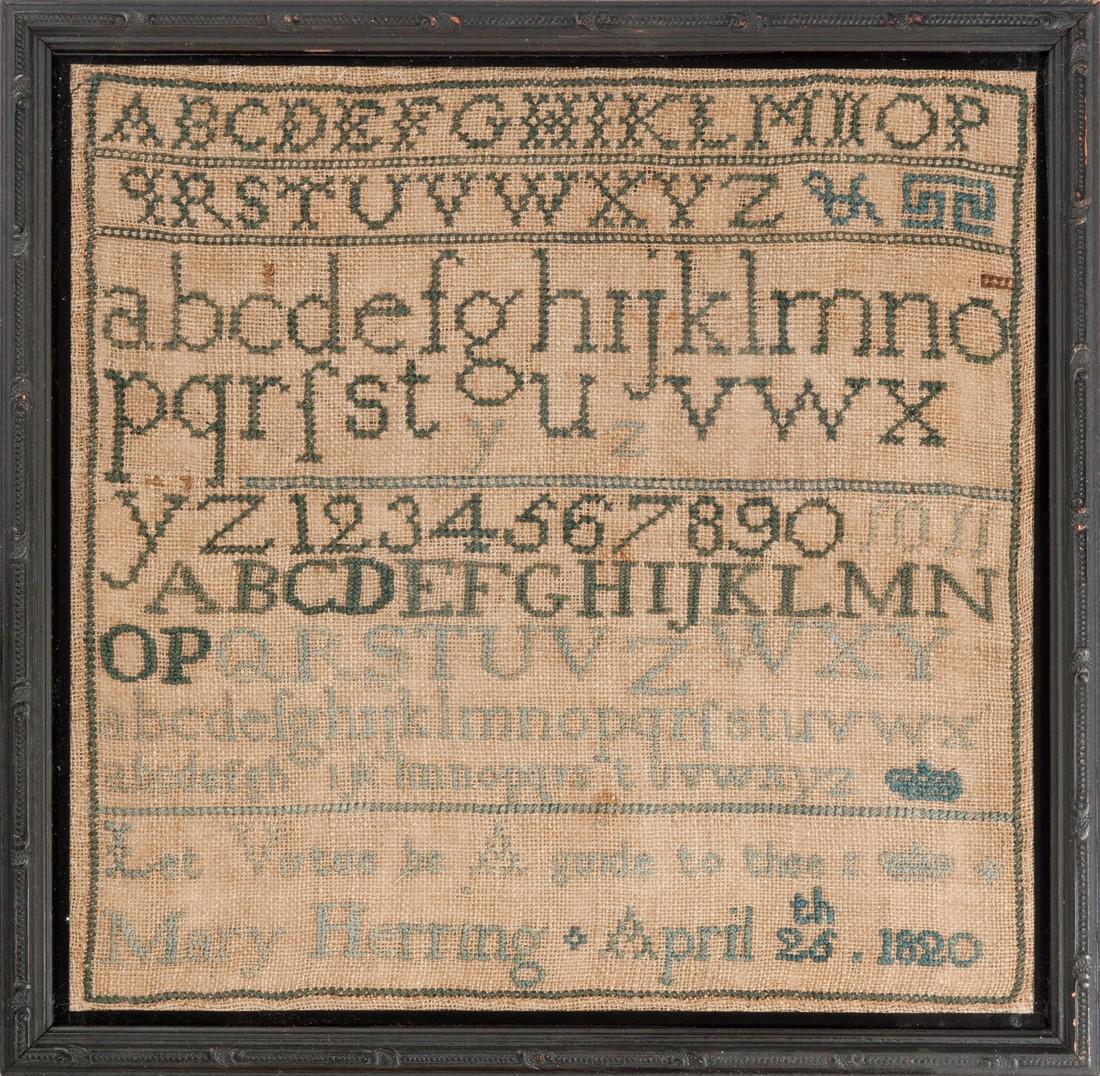 ABCDEFGHIKLMNOP
QRSTUVWXYZ &
abcdefghıjklmno
pqrſstuvwx
y z
yz1234567890 m n
ABCDEFGHIJKLMN
OPQRSTUVZWXY
abcdefghıjklmnopqrſstuvwx
abcdefgh ıjk lmnopqrs tuvwxyz
Let Virtue be A guide to thee
Mary Herring April 25th. 1820